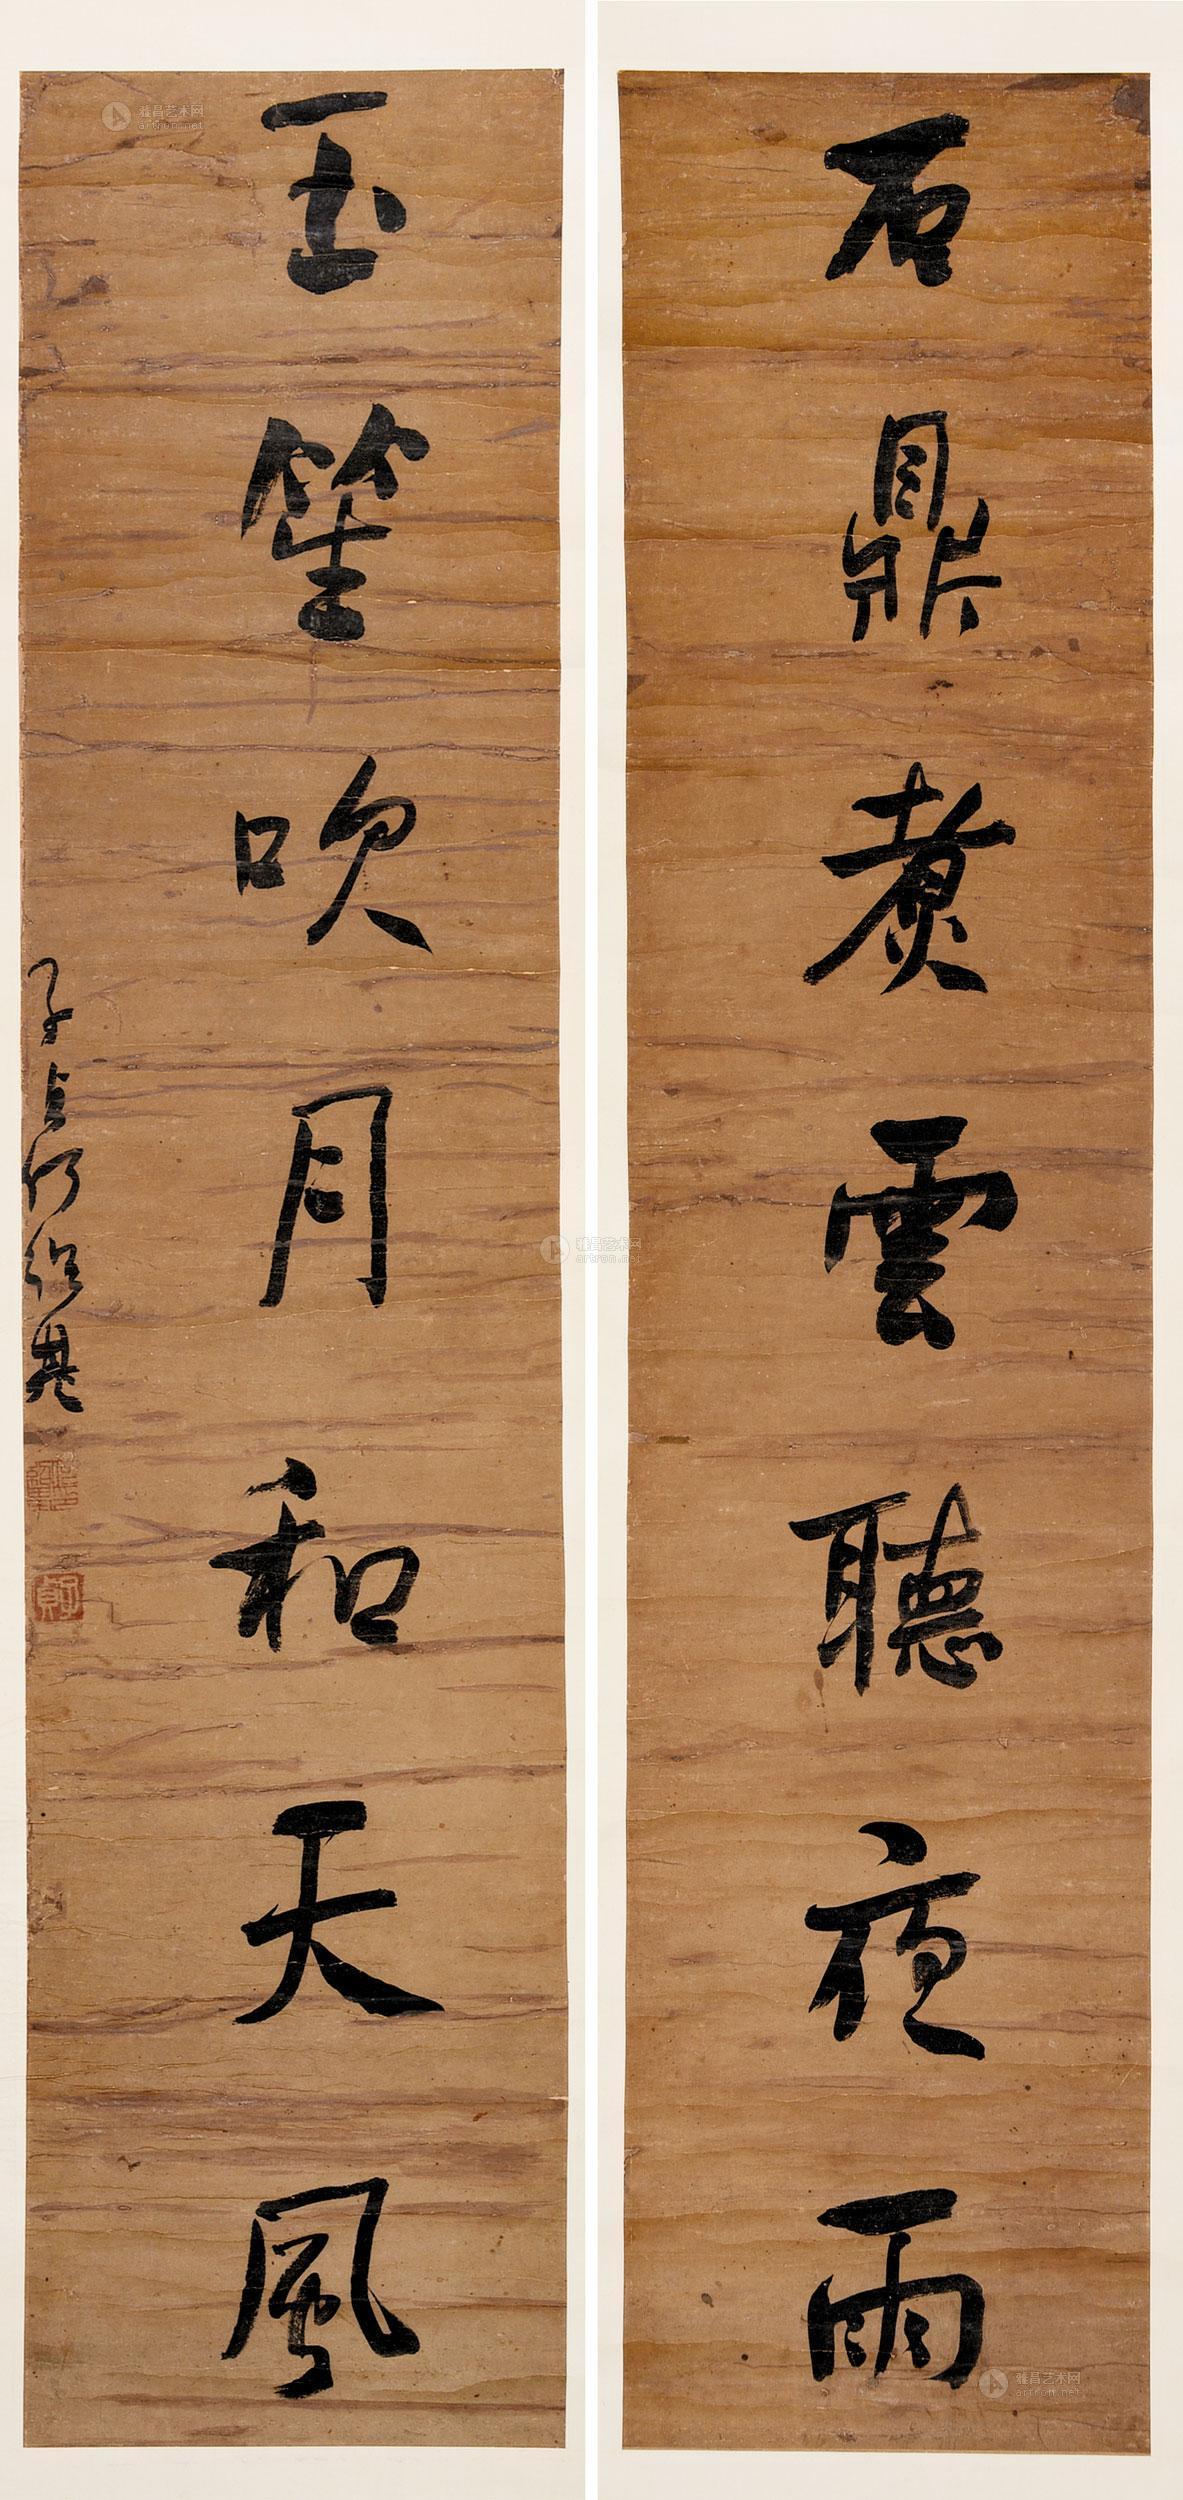 石鼎煑雲聽夜雨
玉笙吹月和天風
子貞何紹基
雅昌艺术网
artron.net
雅昌艺术网
artron.net
雅昌艺术网
artron.net